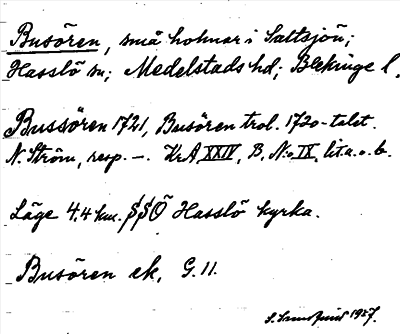 Busören, små holmar i Saltsjön;
Hasslö sn; Medelstads hd; Blekinge l.
Bussören 1721, Busören trol. 1720-talet.
N. Ström, resp. –. KrA XXIV, B, N:o IX, lit. a. o. b.
Läge 4.4 km. SSÖ Hasslö kyrka.
Busören ek. G. 11.
1927.